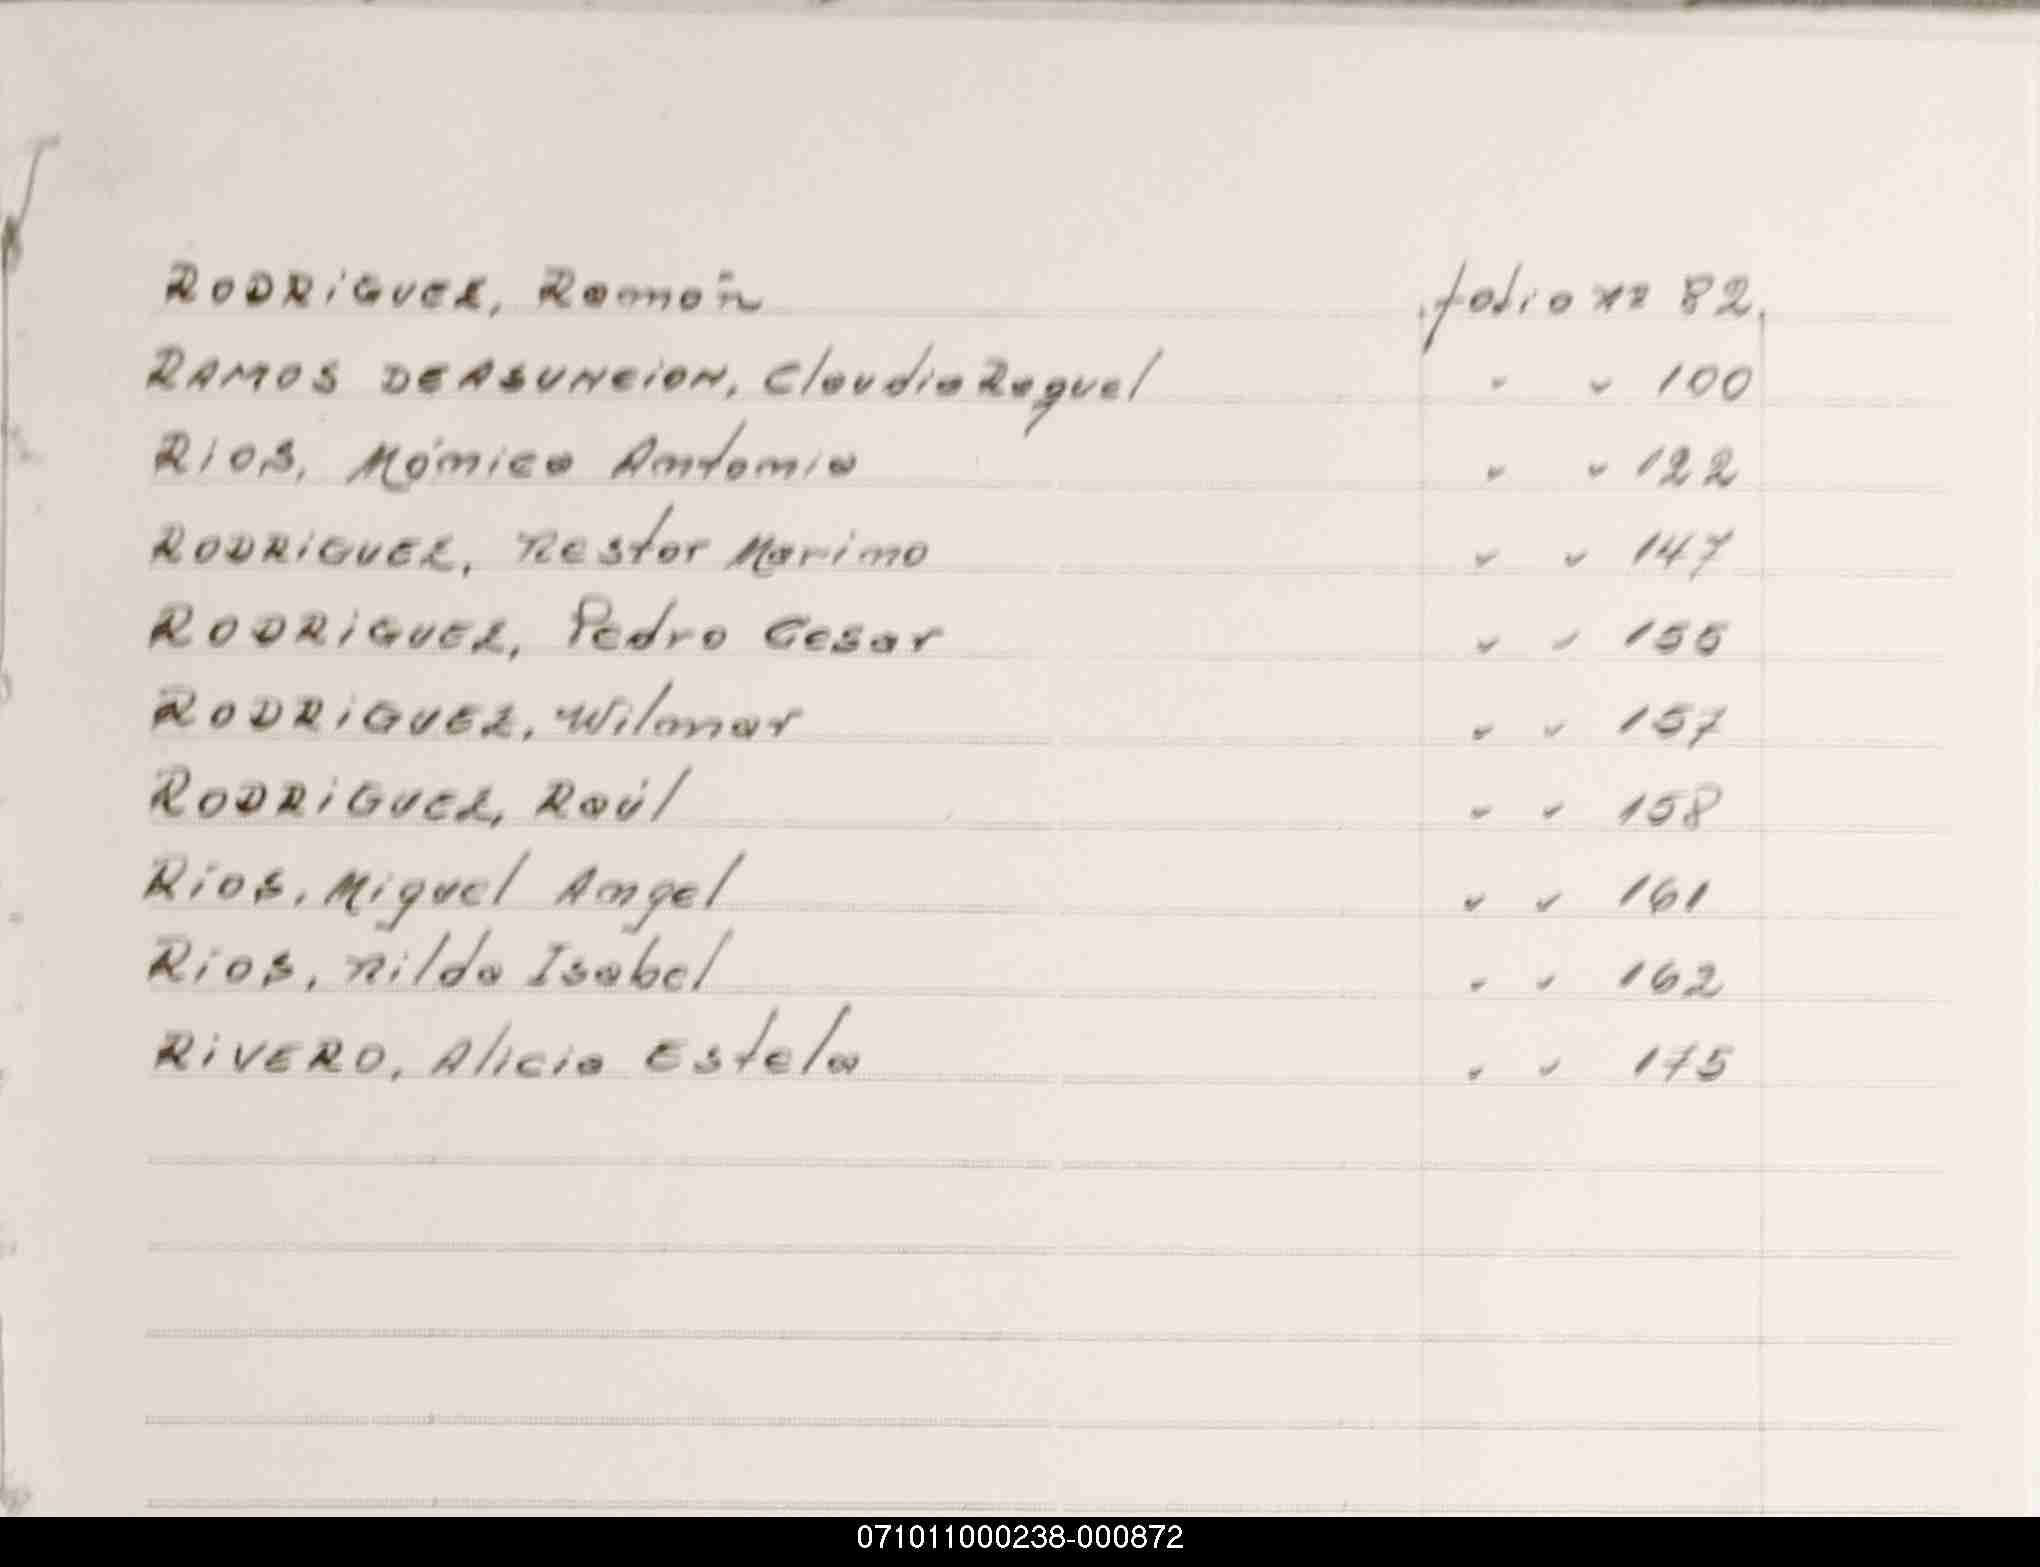 RODRIGUEZ, Ramón folio nº 82
RAMOS DE ASUNCION, Claudia Raquel " " 100
RIOS, Mónica Antonia " " 122
RODRIGUEZ, Nestor Marino " " 147
RODRIGUEZ, Pedro Cesar " " 155
RODRIGUEZ, Wilmar " " 157
RODRIGUEZ, Raúl " " 158
RIOS, Miguel Angel " " 161
RIOS, Nilda Isabel " " 162
RIVERO, Alicia Estela " " 175
071011000238-000872